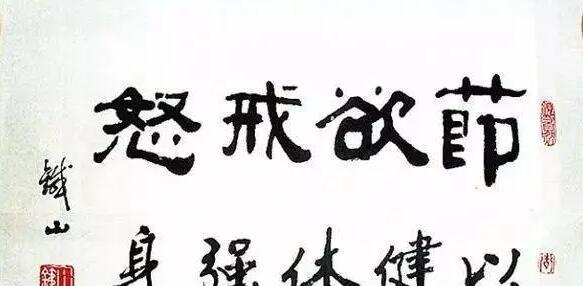 節欲戒怒
以健体强身
鐵山